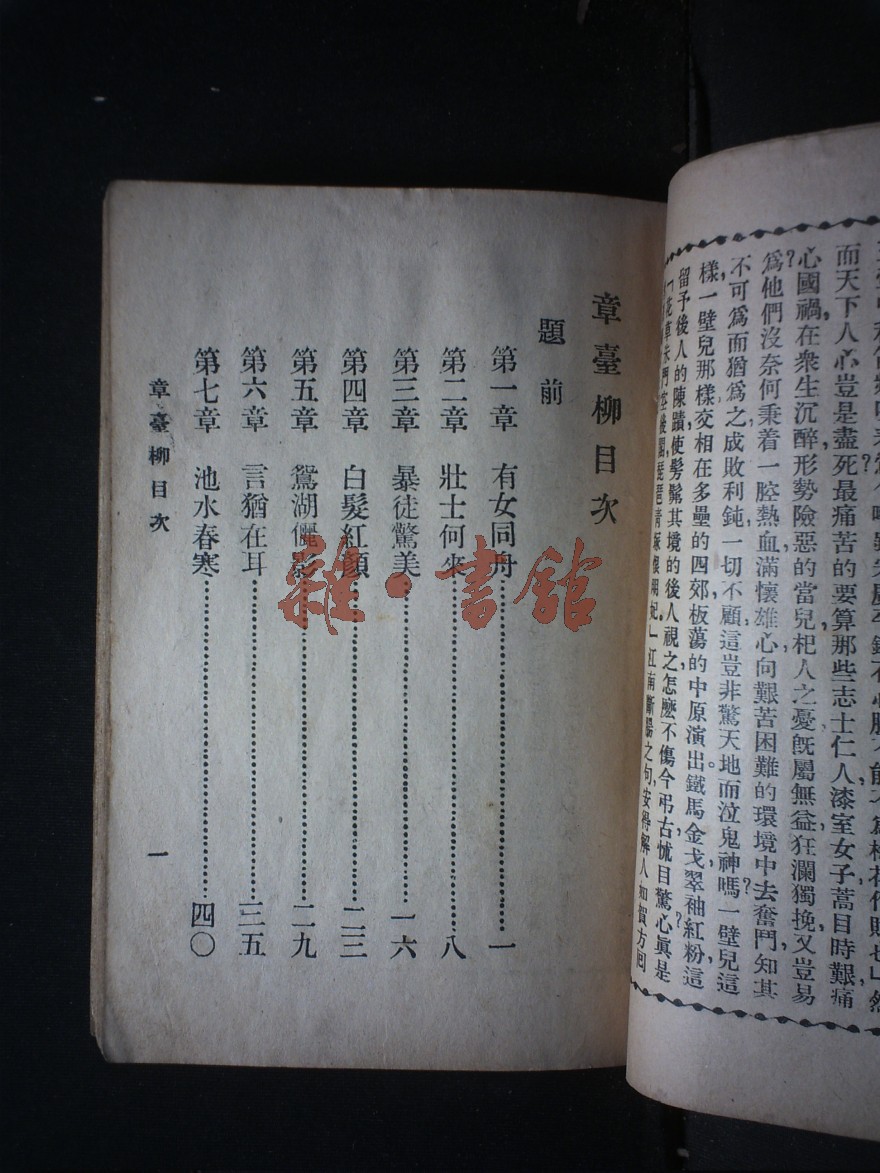 而天下人心豈是盡死最痛苦的要算那些志士仁人漆室女子蒿目時艱痛
心國禍在衆生沉醉形勢險惡的當兒杞人之憂旣屬無益狂瀾獨挽又豈易
爲他們沒奈何秉着一腔熱血滿懷雄心向艱苦困難的環境中去奮鬥知其
不可爲而猶爲之成敗利鈍一切不顧這豈非驚天地而泣鬼神嗎一壁兒這
樣一壁兒那樣交相在多壘的四郊板蕩的中原演出鐵馬金戈翠袖紅粉這
留予後人的陳蹟使髣髴其境的後人視之怎麽不傷今弔古怵目驚心眞是
江南斷腸之句安得解人如賀方回
章臺柳目次
題前
第一章 有女同舟 一
第二章 壯士何來 八
第三章 暴徒驚美 一六
第四章 白髮紅顏 二三
第五章 鴛湖儷影 二九
第六章 言猶在耳 三五
第七章 池水春寒 四〇
章臺柳目次
一
雜·書館